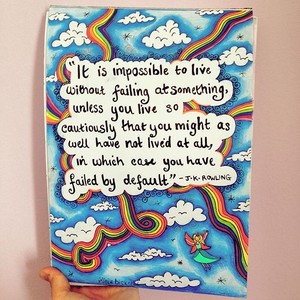 "It is impossible to live
without failing at something,
unless you live so
cautiously that you might as
well have not lived at all,
in which case you have
failed by default" - J.K. ROWLING